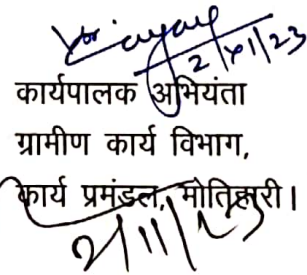 2/11/23
कार्यपालक अभियंता
ग्रामीण कार्य विभाग,
कार्य प्रमंडल, मोतिहारी।